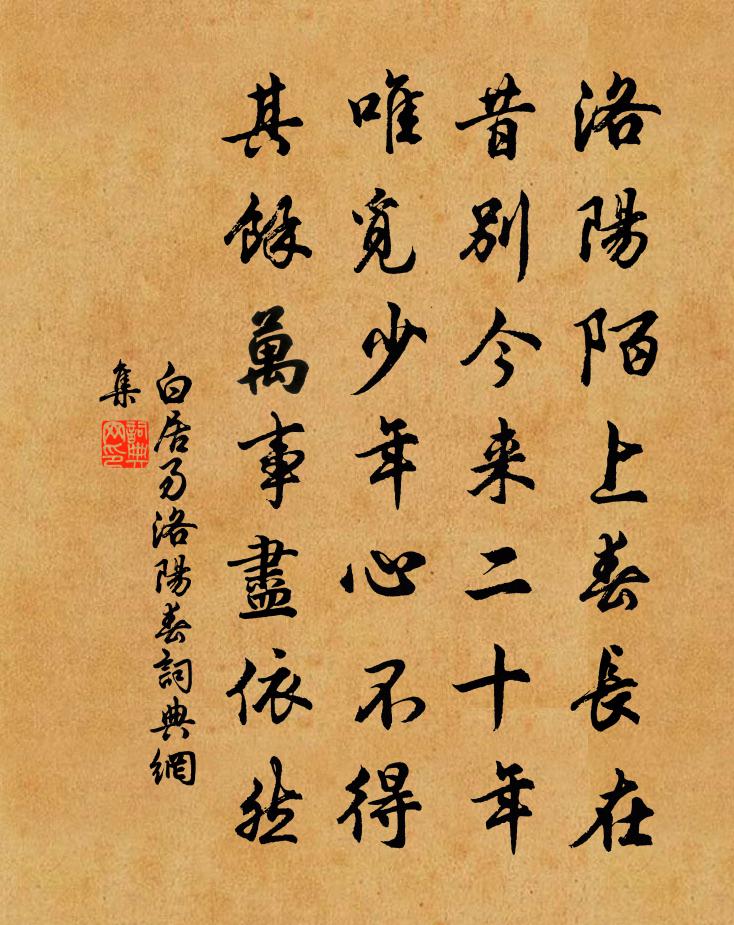 洛陽陌上春長在
昔別今来二十年
唯覓少年心不得
其餘萬事盡依然
白居易洛陽春詞典網
集
詞典
网印